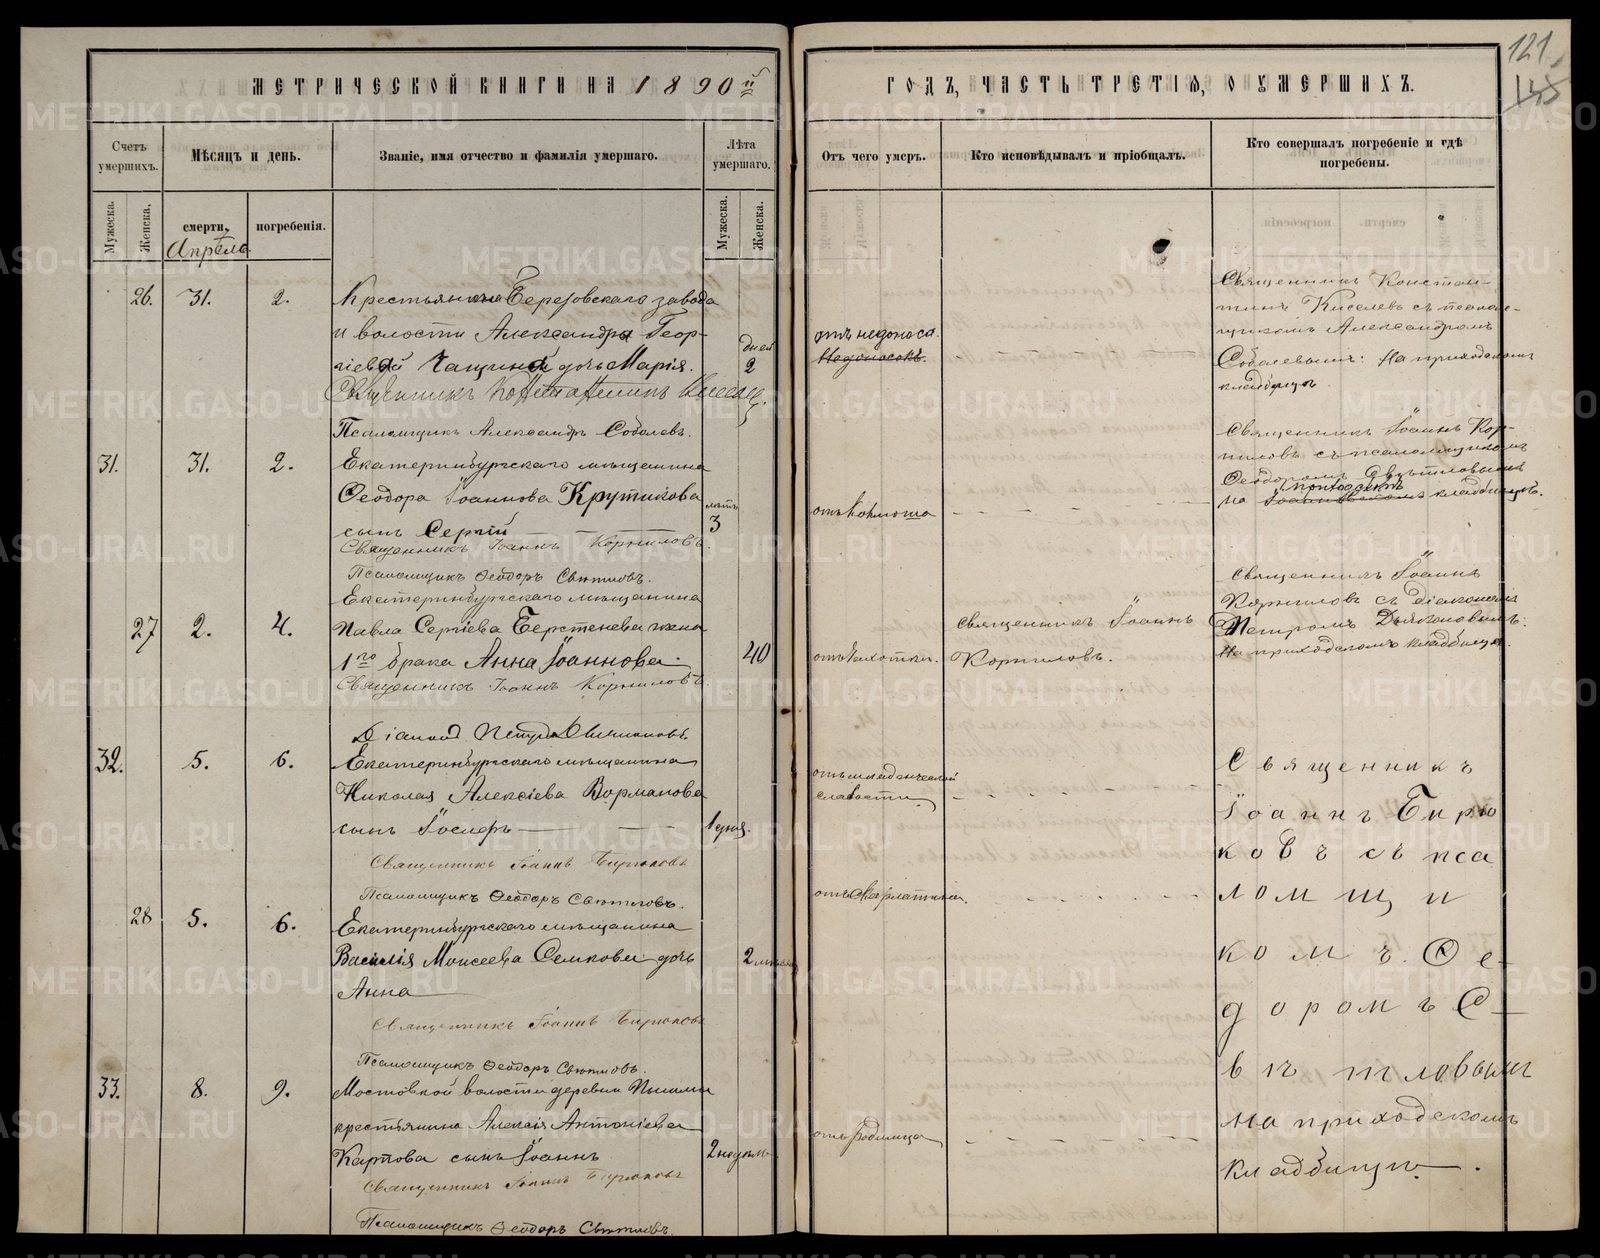 МЕТРИЧЕСКОЙ КНИГИ НА 1890й
ГОДЪ, ЧАСТЬ ТРЕТІЯ, О УМЕРШИХЪ.
121.
145
Счетъ умершихъ.
Мѣсяцъ и день.
Званіе, имя отчество и фамилія умершаго.
Лѣта умершаго.
Отъ чего умеръ.
Кто исповѣдывалъ и пріобщалъ.
Кто совершалъ погребеніе и гдѣ погребены.
Мужеска.
Женска.
смерти.
погребенія.
Мужеска.
Женска.
Апрѣль
26. 31. 2.
Березовскаго завода
и волости Александра Геор-
гіева дочь Марія.
дней
2
отъ недоноса.
Недоносокъ.
Священникъ Констан-
тинъ Киселевъ съ псалом-
щикомъ Александромъ
Соболевымъ: На приходскомъ
кладбищѣ.
Священникъ Константинъ
Псаломщикъ Александръ Соболевъ.
31. 31. 2.
Екатеринбургскаго мѣщанина
Ѳеодора Іоаннова Крутикова
сынъ Сергій
лѣтъ
3
отъ коклюша
Священникъ Іоаннъ Кор-
ниловъ съ псаломщикомъ
Ѳеодоромъ Свѣтловымъ
приходскомъ
на Іоанновскомъ кладбищѣ.
Священникъ Іоаннъ Корниловъ.
Псаломщикъ Ѳеодоръ Свѣтловъ.
27 2. 4.
Екатеринбургскаго мѣщанина
Павла Сергіева Берстенева жена
1го брака Анна Іоаннова.
40
отъ чахотки.
Священникъ Іоаннъ
Корниловъ.
Священникъ Іоаннъ
Корниловъ съ діакономъ
Петромъ
На приходскомъ кладбищѣ.
Священникъ Іоаннъ Корниловъ
Діаконъ Петръ
32. 5. 6.
Екатеринбургскаго мѣщанина
Николая Алексіева
сынъ Іосифъ
1 дня.
отъ младенческой
слабости
Священникъ
Іоаннъ Бирю
ковъ съ пса
ломщи
комъ Ѳе-
доромъ С-
вѣтловымъ
На приходскомъ
кладбищѣ.
Священникъ Іоаннъ Бирюковъ
Псаломщикъ Ѳеодоръ Свѣтловъ.
28 5. 6.
Екатеринбургскаго мѣщанина
Василія Моисеева Семкова дочь
Анна
2 мѣсяц
отъ скарлатины.
Священникъ Іоаннъ Бирюковъ
Псаломщикъ Ѳеодоръ Свѣтловъ.
33. 8. 9.
Мостовской волости деревни
крестьянина Алексія Антоніева
Карпова сынъ Іоаннъ
2 недѣль
отъ родимца
Священникъ Іоаннъ Бирюковъ
Псаломщикъ Ѳеодоръ Свѣтловъ.
METRIKI.GASO-URAL.RU